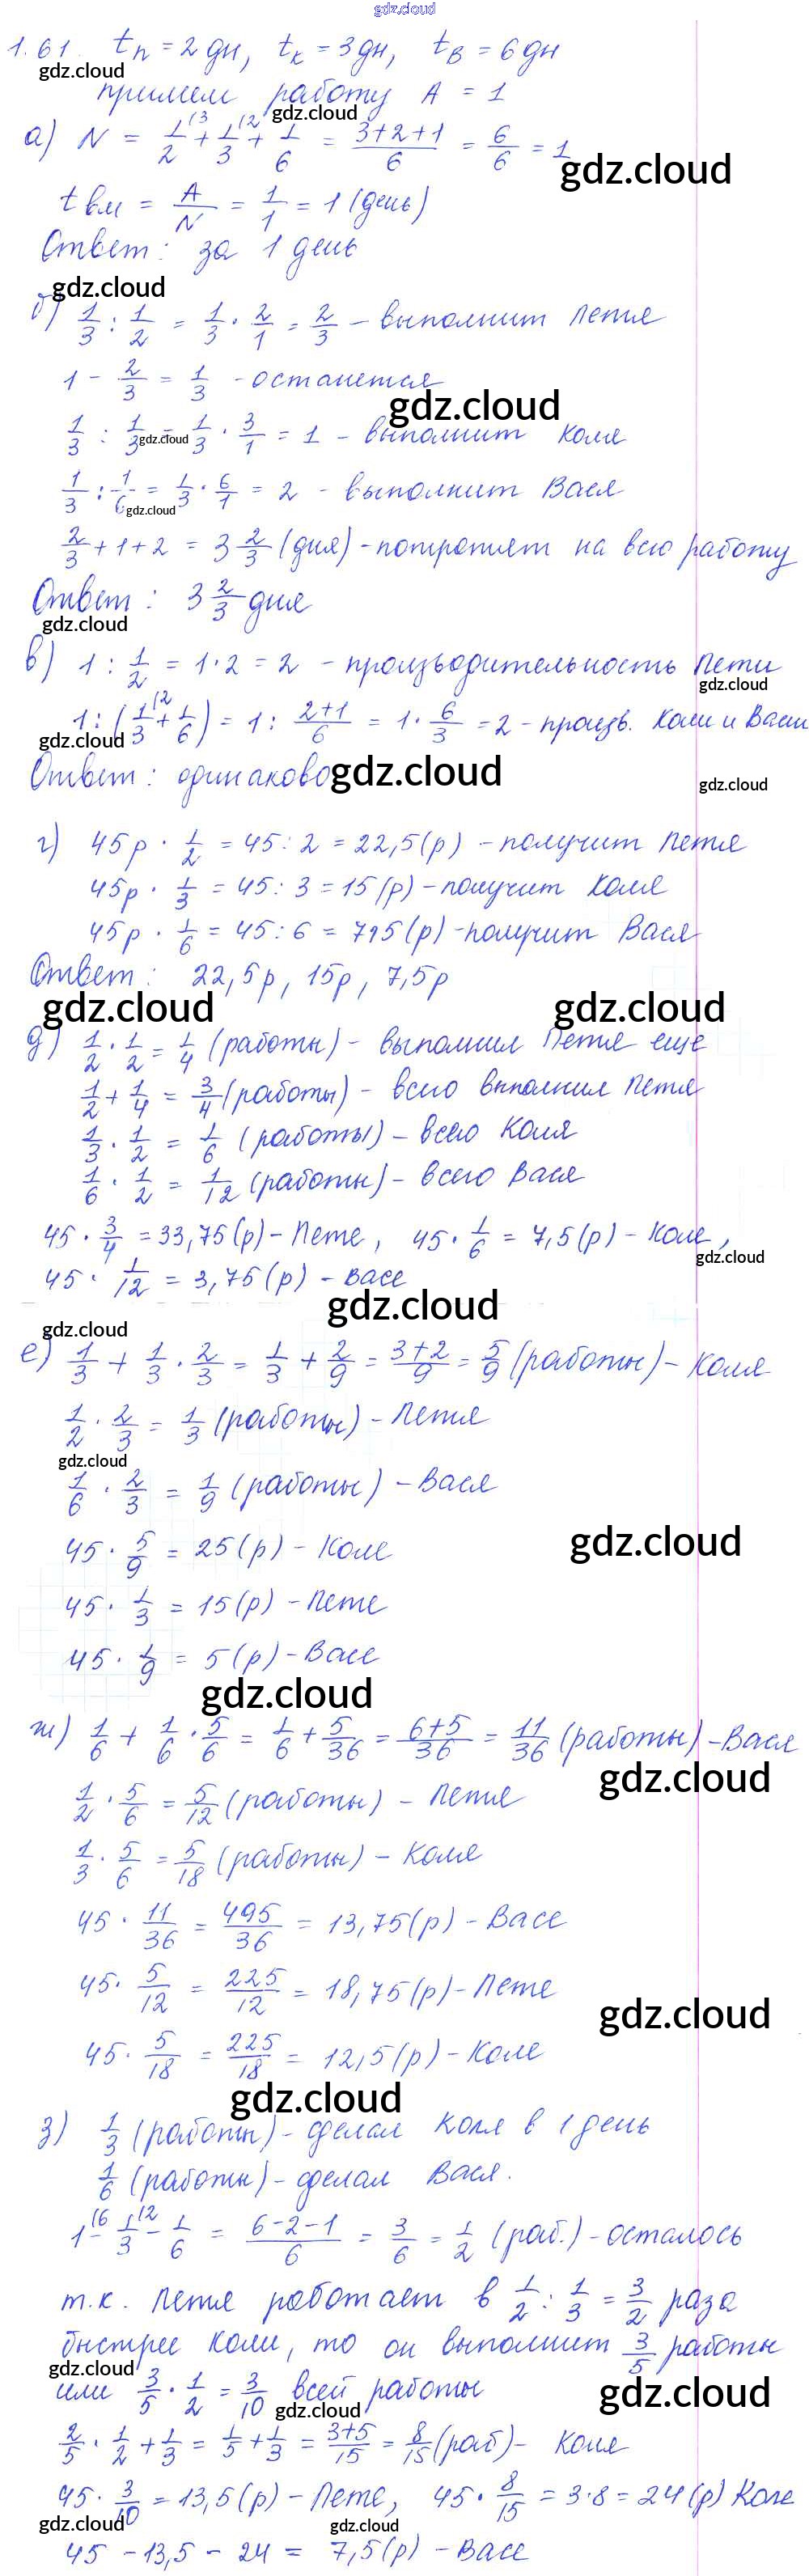 gdz.cloud
1.61. tп = 2 дн, tк = 3 дн, tв = 6 дн
gdz.cloud
примем работу А = 1
gdz.cloud
а) N = 1/2 (3 + 1/3 (2 + 1/6 = (3+2+1)/6 = 6/6 = 1
gdz.cloud
tвм = A/N = 1/1 = 1 (день)
Ответ: за 1 день
gdz.cloud
б) 1/3 : 1/2 = 1/3 · 2/1 = 2/3 - выполнит Петя
1 - 2/3 = 1/3 - останется
gdz.cloud
1/3 : 1/3 = 1/3 · 3/1 = 1 - выполнит Коля
gdz.cloud
1/3 : 1/6 = 1/3 · 6/1 = 2 - выполнит Вася
gdz.cloud
2/3 + 1 + 2 = 3 2/3 (дня) - потратят на всю работу
Ответ: 3 2/3 дня
gdz.cloud
в) 1 : 1/2 = 1 · 2 = 2 - производительность Пети
gdz.cloud
1 : (1/3 (2 + 1/6) = 1 : (2+1)/6 = 1 · 6/3 = 2 - произв. Коли и Васи
gdz.cloud
Ответ: одинаково
gdz.cloud
gdz.cloud
г) 45р · 1/2 = 45 : 2 = 22,5 (р) - получит Петя
45р · 1/3 = 45 : 3 = 15 (р) - получит Коля
45р · 1/6 = 45 : 6 = 7,5 (р) - получит Вася
Ответ: 22,5р, 15р, 7,5р
gdz.cloud gdz.cloud
д) 1/2 · 1/2 = 1/4 (работы) - выполнил Петя еще
1/2 + 1/4 = 3/4 (работы) - всего выполнил Петя
1/3 · 1/2 = 1/6 (работы) - всего Коля
1/6 · 1/2 = 1/12 (работы) - всего Вася
45 · 3/4 = 33,75 (р) - Пете, 45 · 1/6 = 7,5 (р) - Коле,
gdz.cloud
45 · 1/12 = 3,75 (р) - Васе
gdz.cloud
gdz.cloud
е) 1/3 + 1/3 · 2/3 = 1/3 + 2/9 = (3+2)/9 = 5/9 (работы) - Коля
1/2 · 2/3 = 1/3 (работы) - Петя
gdz.cloud
1/6 · 2/3 = 1/9 (работы) - Вася
gdz.cloud
45 · 5/9 = 25 (р) - Коле
45 · 1/3 = 15 (р) - Пете
45 · 1/9 = 5 (р) - Васе
gdz.cloud
ж) 1/6 + 1/6 · 5/6 = 1/6 + 5/36 = (6+5)/36 = 11/36 (работы) - Вася
gdz.cloud
1/2 · 5/6 = 5/12 (работы) - Петя
1/3 · 5/6 = 5/18 (работы) - Коля
45 · 11/36 = 495/36 = 13,75 (р) - Васе
45 · 5/12 = 225/12 = 18,75 (р) - Пете
gdz.cloud
45 · 5/18 = 225/18 = 12,5 (р) - Коле
gdz.cloud
з) 1/3 (работы) - сделал Коля в 1 день
1/6 (работы) - сделал Вася.
1 (6 - 1/3 (2 - 1/6 = (6-2-1)/6 = 3/6 = 1/2 (раб.) - осталось
т.к. Петя работает в 1/2 : 1/3 = 3/2 раза
быстрее Коли, то он выполнит 3/5 работы
gdz.cloud
или 3/5 · 1/2 = 3/10 всей работы
gdz.cloud
gdz.cloud
2/5 · 1/2 + 1/3 = 1/5 + 1/3 = (3+5)/15 = 8/15 (раб) - Коля
45 · 3/10 = 13,5 (р) - Пете, 45 · 8/15 = 3·8 = 24 (р) Коле
gdz.cloud gdz.cloud
45 - 13,5 - 24 = 7,5 (р) - Васе